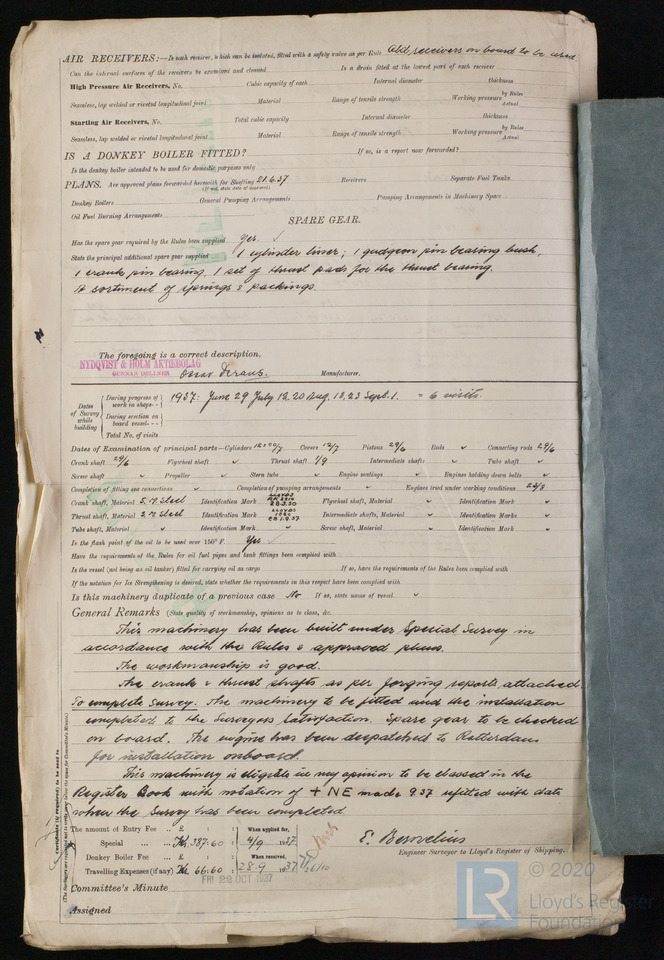 AIR RECEIVERS:—Is each receiver, which can be isolated, fitted with a safety valve as per Rule Old receivers on board to be used
Can the internal surfaces of the receivers be examined and cleaned Is a drain fitted at the lowest part of each receiver
High Pressure Air Receivers, No. Cubic capacity of each Internal diameter thickness
Seamless, lap welded or riveted longitudinal joint Material Range of tensile strength Working pressure by Rules Actual
Starting Air Receivers, No. Total cubic capacity Internal diameter thickness
Seamless, lap welded or riveted longitudinal joint Material Range of tensile strength Working pressure by Rules Actual
IS A DONKEY BOILER FITTED? If so, is a report now forwarded?
Is the donkey boiler intended to be used for domestic purposes only
PLANS. Are approved plans forwarded herewith for Shafting 21.6.37 Receivers Separate Fuel Tanks
(If not, state date of approval)
Donkey Boilers General Pumping Arrangements Pumping Arrangements in Machinery Space
Oil Fuel Burning Arrangements
SPARE GEAR.
Has the spare gear required by the Rules been supplied Yes. ✓
State the principal additional spare gear supplied 1 cylinder liner; 1 gudgeon pin bearing bush,
1 crank pin bearing, 1 set of thrust pads for the thrust bearing.
A sortiment of springs & packings
The foregoing is a correct description,
NYDQVIST & HOLM AKTIEBOLAG
GUNNAR DELLNER Manufacturer.
Dates of Survey while building
During progress of work in shops - - 1937: June 29 July 12, 20 Aug. 18, 23 Sept. 1. = 6 visits.
During erection on board vessel - - -
Total No. of visits
Dates of Examination of principal parts—Cylinders 12 & 20/7 Covers 12/7 Pistons 29/6 Rods ✓ Connecting rods 29/6
Crank shaft 29/6 Flywheel shaft ✓ Thrust shaft 1/9 Intermediate shafts ✓ Tube shaft ✓
Screw shaft ✓ Propeller ✓ Stern tube ✓ Engine seatings ✓ Engines holding down bolts ✓
Completion of fitting sea connections ✓ Completion of pumping arrangements ✓ Engines tried under working conditions 23/8
Crank shaft, Material S.M. Steel Identification Mark LLOYDS Flywheel shaft, Material ✓ Identification Mark ✓
Thrust shaft, Material S.M. Steel Identification Mark LLOYDS EB 1.9.37 Intermediate shafts, Material ✓ Identification Marks ✓
Tube shaft, Material ✓ Identification Mark ✓ Screw shaft, Material ✓ Identification Mark ✓
Is the flash point of the oil to be used over 150° F. Yes ✓
Have the requirements of the Rules for oil fuel pipes and tank fittings been complied with
Is the vessel (not being an oil tanker) fitted for carrying oil as cargo If so, have the requirements of the Rules been complied with
If the notation for Ice Strengthening is desired, state whether the requirements in this respect have been complied with
Is this machinery duplicate of a previous case No If so, state name of vessel ✓
General Remarks (State quality of workmanship, opinions as to class, &c.
This machinery has been built under Special Survey in
accordance with the Rules & approved plans.
The workmanship is good.
The crank & thrust shafts as per forging reports attached.
To complete Survey. The machinery to be fitted and the installation
completed to the Surveyors satisfaction. Spare gear to be checked
on board. The engine has been despatched to Rotterdam
for installation onboard.
This machinery is eligible in my opinion to be classed in the
Register Book with notation of + NE made 9.37 refitted with date
when the Survey has been completed
The amount of Entry Fee .. £ : : When applied for,
Special ... ... Kr. 387.60 : 4/9 1937
Donkey Boiler Fee ... £ : : When received,
Travelling Expenses (if any) Kr. 66.60 : 28.9 1937
E. Berovelius
Engineer Surveyor to Lloyd's Register of Shipping.
FRI 22 OCT 1937
Committee's Minute
Assigned
LR © 2020
Lloyd's Register
Foundation